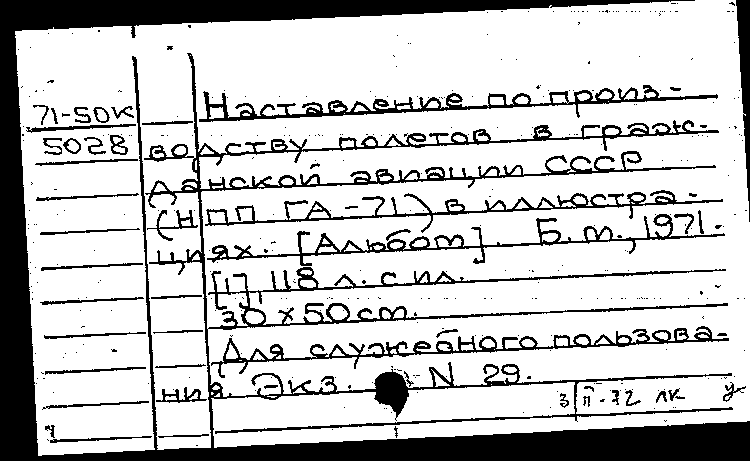 71-50К
5028
Наставление по произ-
водству полетов в граж-
данской авиации СССР
(НПП ГА-71) в иллюстра-
циях. [Альбом]. Б.м., 1971.
[1], 118 л. с ил.
30х50 см.
Для служебного пользова-
ния. Экз. N 29.
3/II-72 ЛК